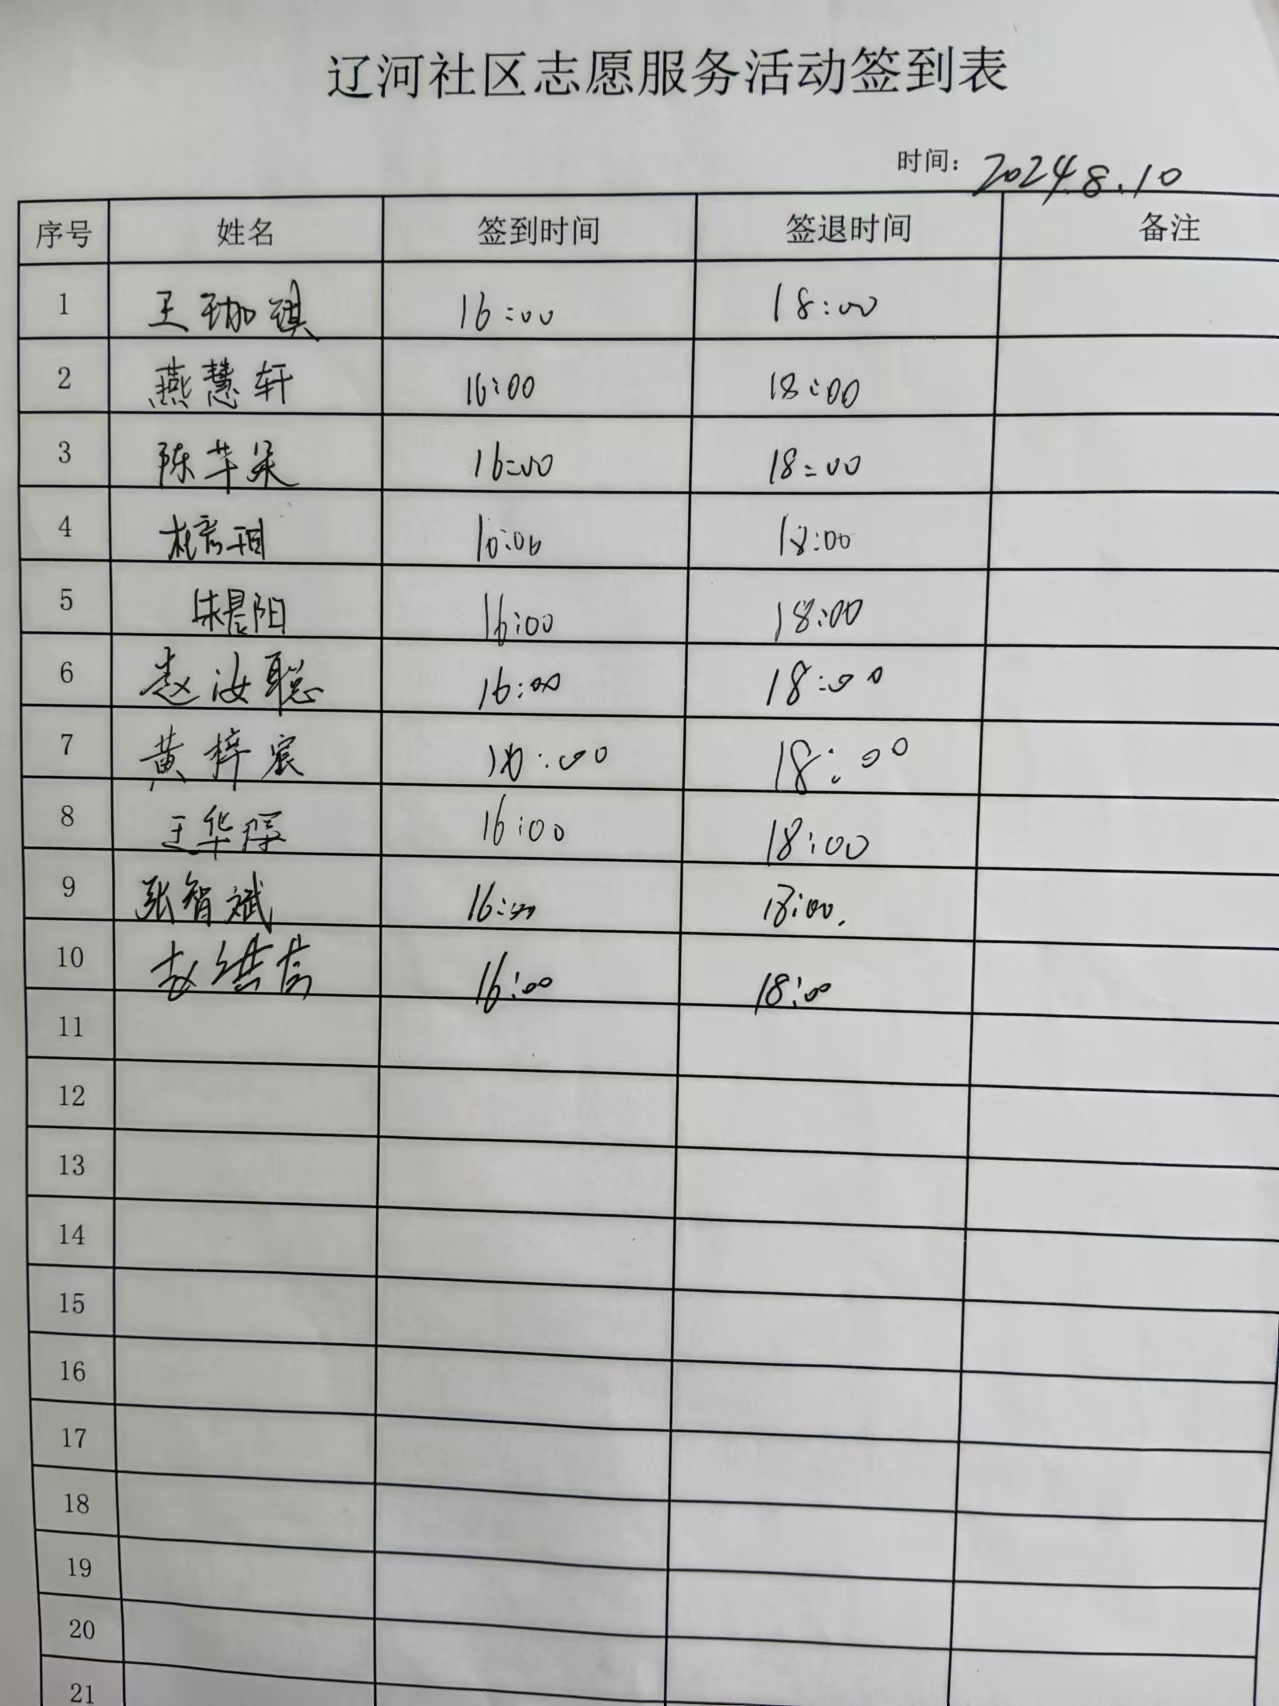 辽河社区志愿服务活动签到表
时间：2024.8.10
序号 姓名 签到时间 签退时间 备注
1 王珈琪 16:00 18:00
2 燕慧轩 16:00 18:00
3 陈芊朵 16:00 18:00
4 16:00 18:00
5 朱晨阳 16:00 18:00
6 赵汝聪 16:00 18:00
7 黄梓宸 16:00 18:00
8 王华 16:00 18:00
9 张智斌 16:00 18:00.
10 赵 16:00 18:00
11
12
13
14
15
16
17
18
19
20
21